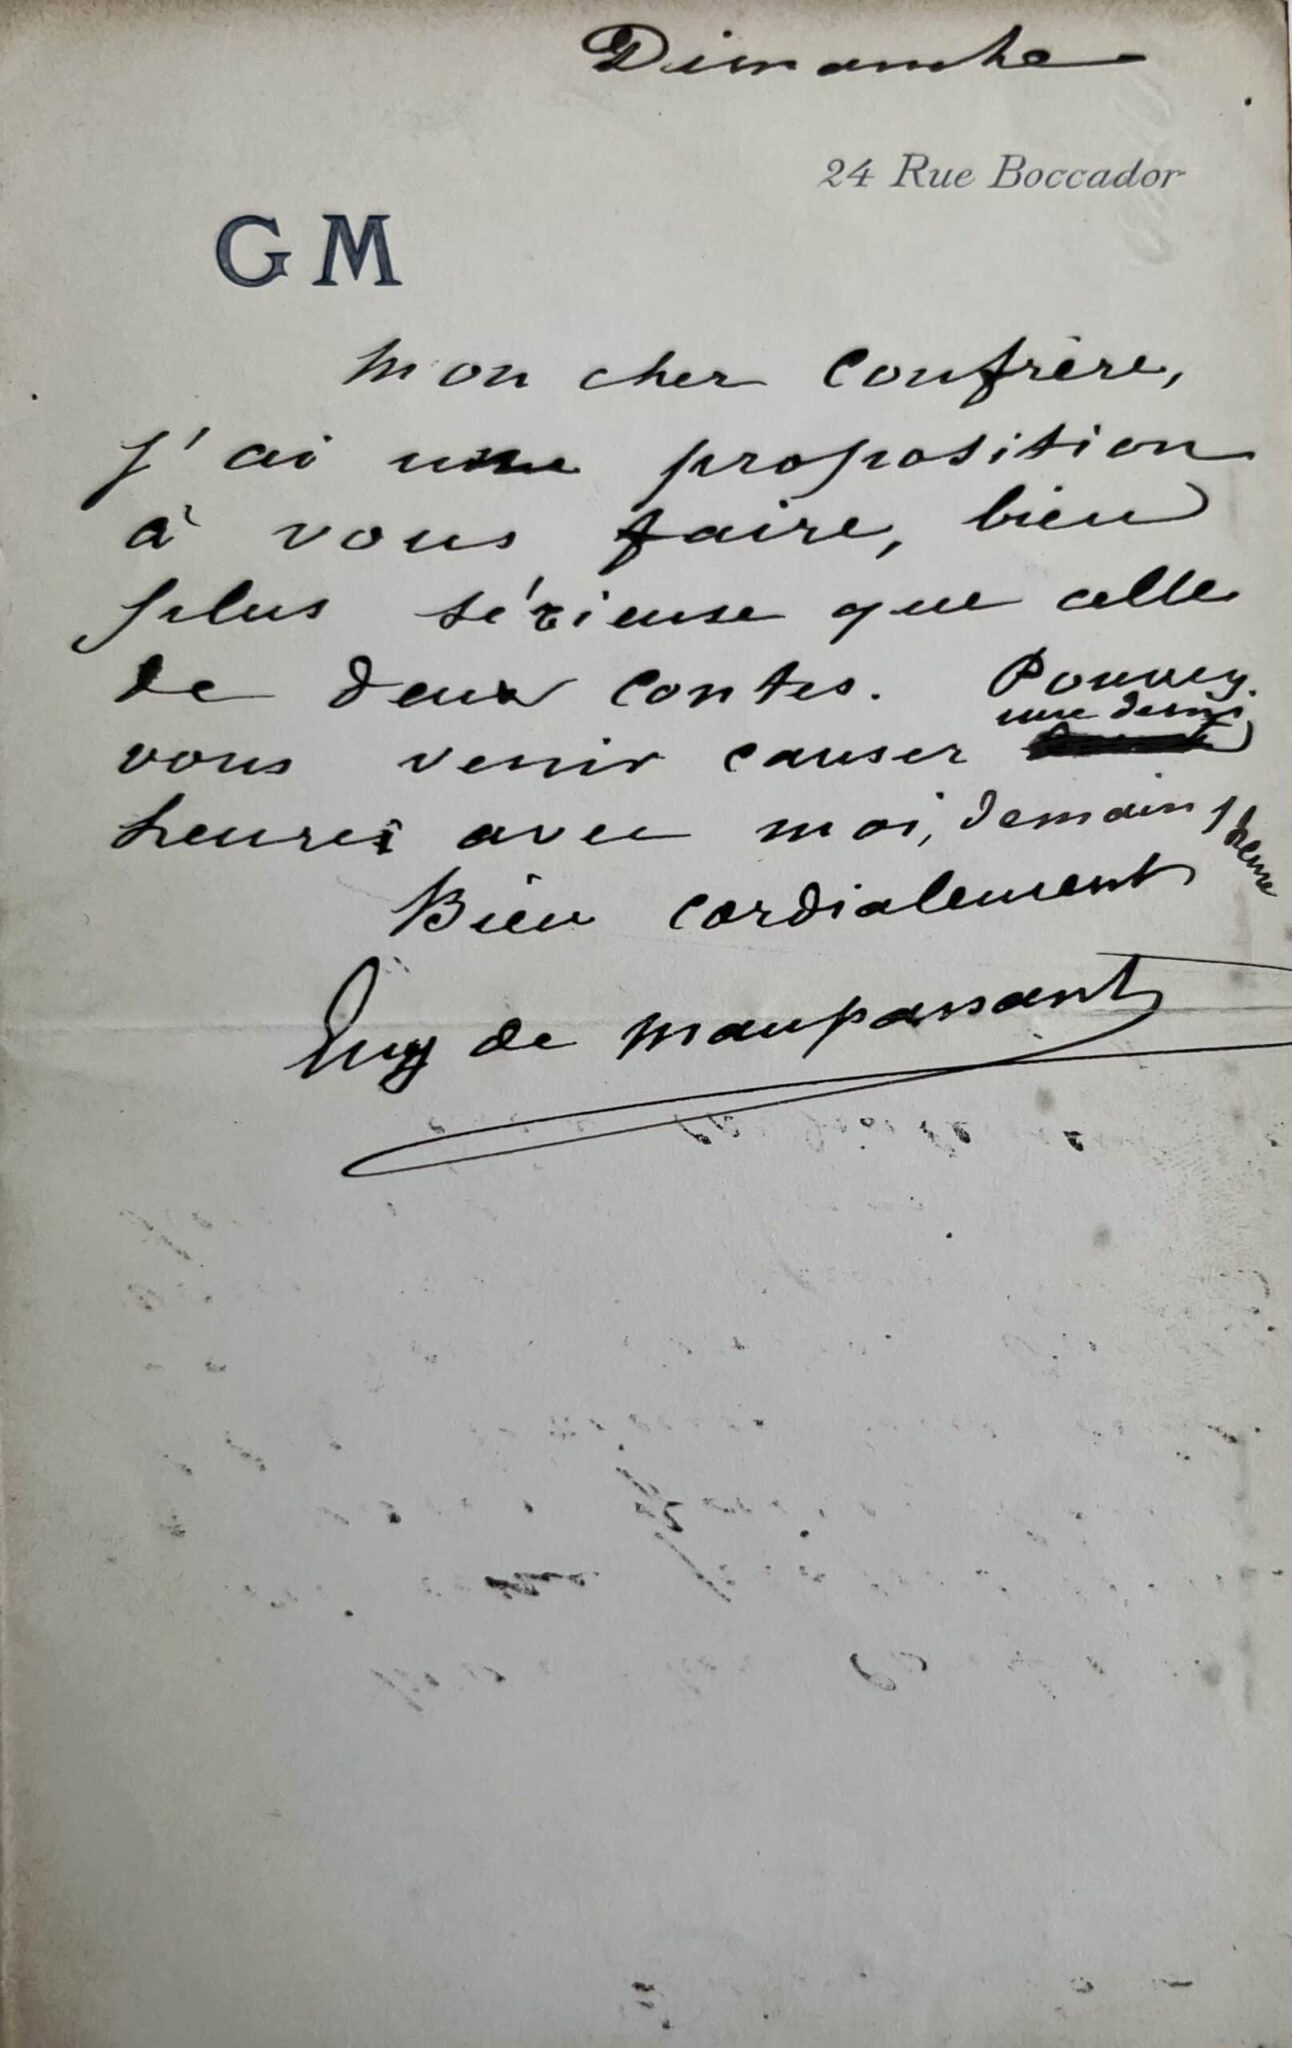 Dimanche
24 Rue Boccador
GM
Mon cher confrère,
j'ai une proposition
à vous faire, bien
plus sérieuse que celle
de deux contes. Pouvez
vous venir causer une demi
heure avec moi, demain 1 heure
Bien cordialement
Guy de Maupassant